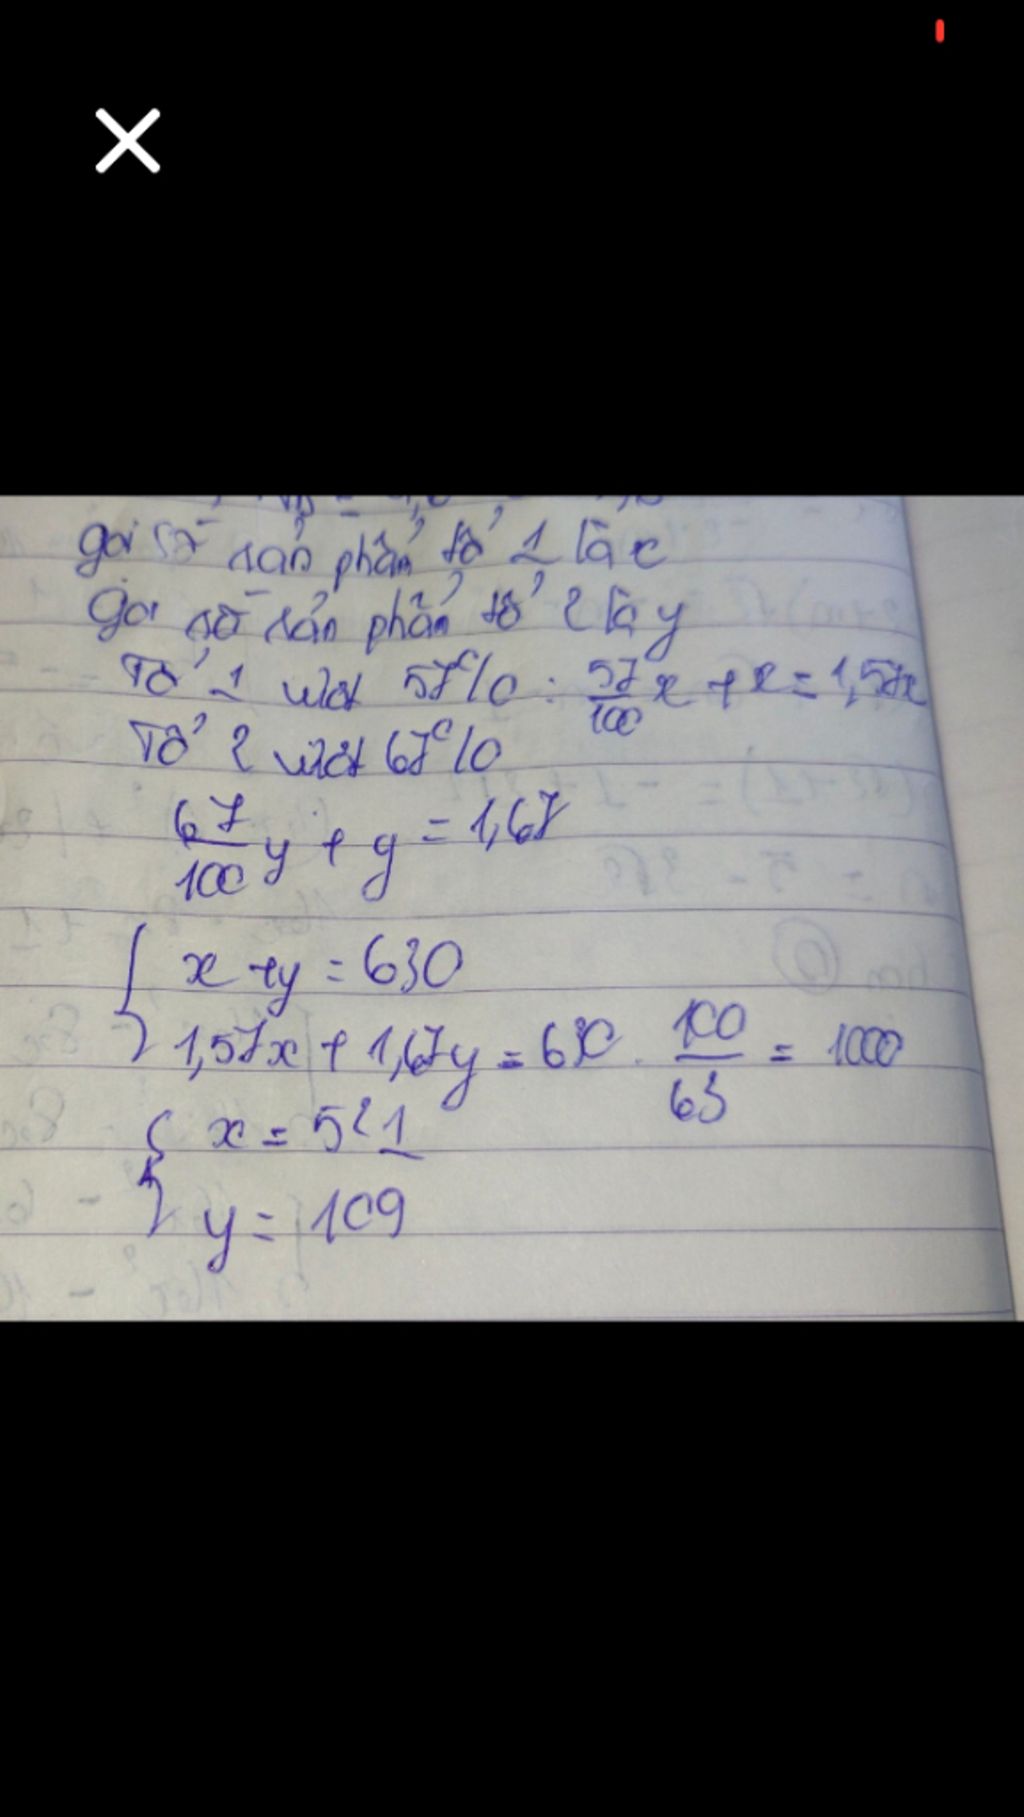 gọi số sản phẩm tổ 1 là x
gọi số sản phẩm tổ 2 là y
Tổ 1 vượt 57% : 57/100 x + x = 1,57x
Tổ 2 vượt 67%
67/100 y + y = 1,67
x + y = 630
1,57x + 1,67y = 630 . 100/63 = 1000
x = 521
y = 109